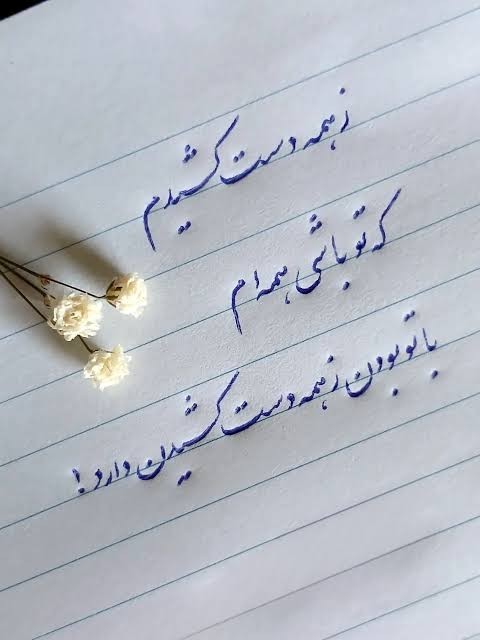 ز همه دست کشیدم
که تو باشی همه ام
با تو بودن ز همه دست کشیدن دارد!